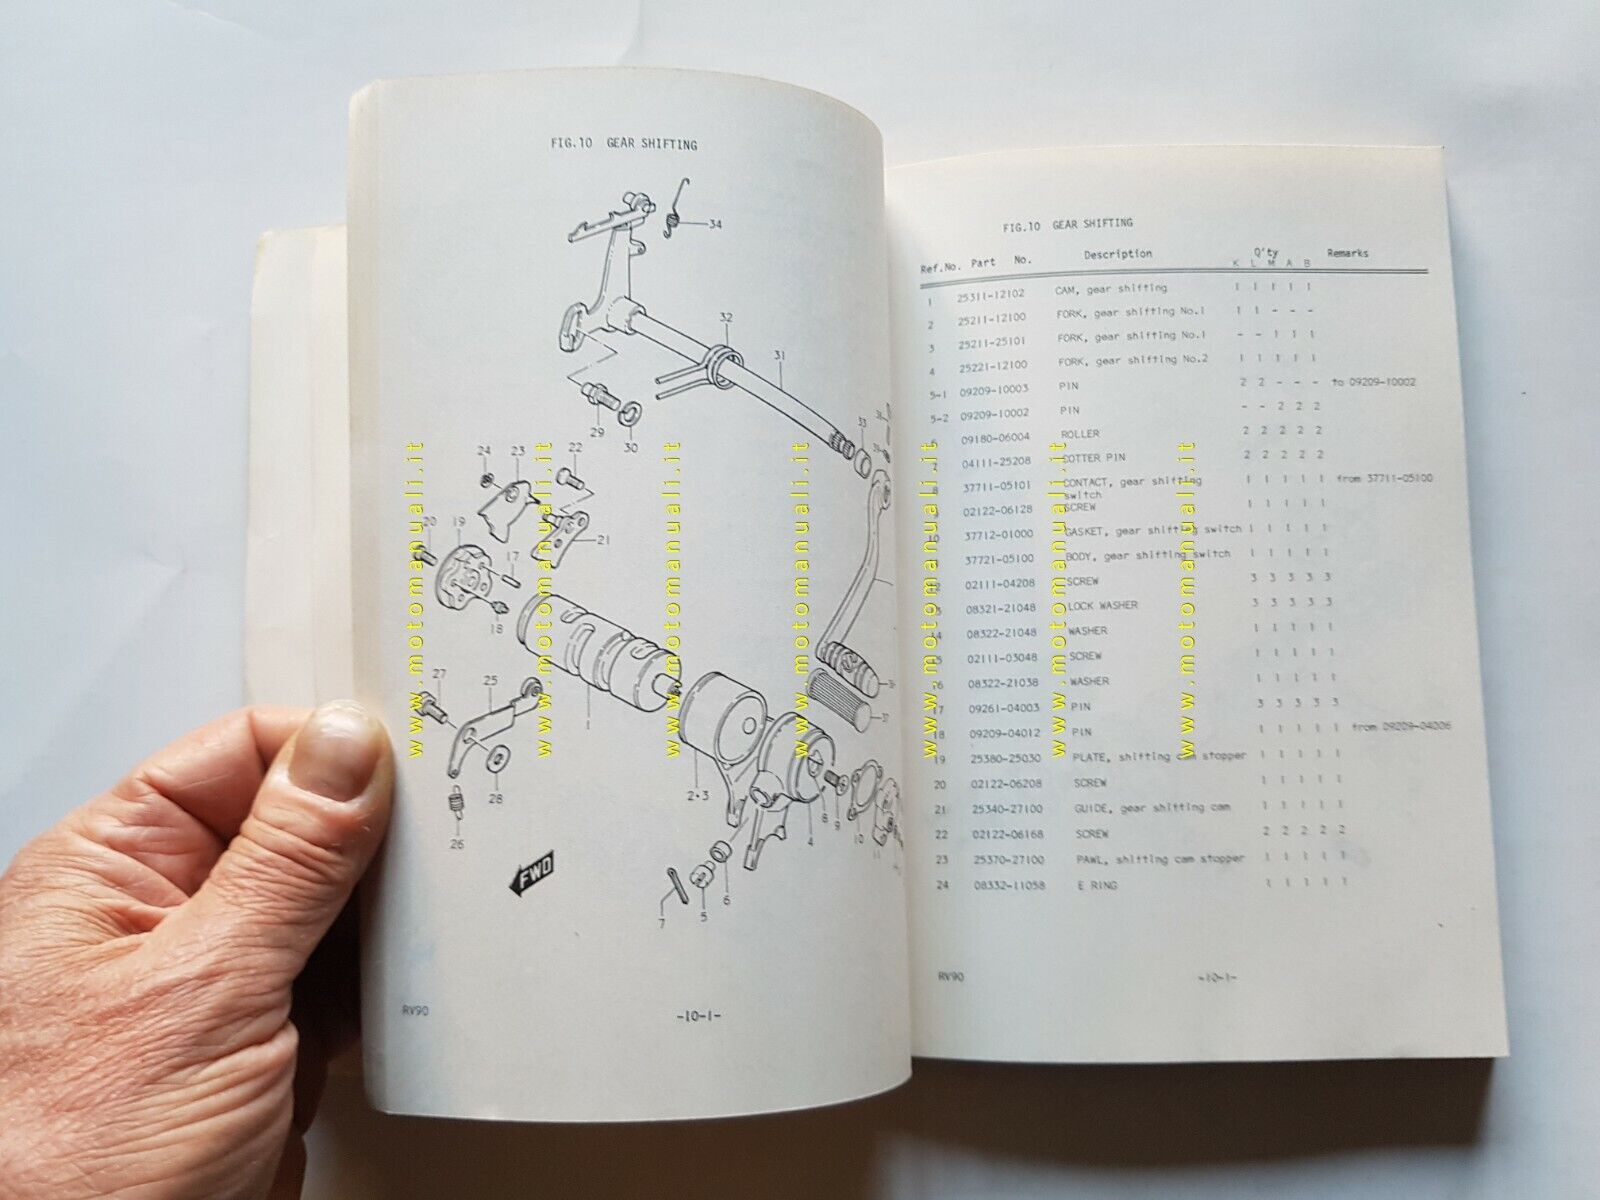 FIG.10 GEAR SHIFTING
34
32
31
33
29
30
22
24
23
20
19
21
17
18
27
25
1
2·3
28
26
4
8
9
10
11
37
6
5
7
FWD
RV90
-10-1-
FIG.10 GEAR SHIFTING
Ref.No. Part No. Description Q'ty Remarks
K L M A B
1 25311-12102 CAM, gear shifting 1 1 1 1 1
2 25211-12100 FORK, gear shifting No.1 1 1 - - -
3 25211-25101 FORK, gear shifting No.1 - - 1 1 1
4 25221-12100 FORK, gear shifting No.2 1 1 1 1 1
5-1 09209-10003 PIN 2 2 - - - to 09209-10002
5-2 09209-10002 PIN - - 2 2 2
6 09180-06004 ROLLER 2 2 2 2 2
7 04111-25208 COTTER PIN 2 2 2 2 2
8 37711-05101 CONTACT, gear shifting 1 1 1 1 1 from 37711-05100
switch
9 02122-06128 SCREW 1 1 1 1 1
10 37712-01000 GASKET, gear shifting switch 1 1 1 1 1
37721-05100 BODY, gear shifting switch 1 1 1 1 1
02111-04208 SCREW 3 3 3 3 3
08321-21048 LOCK WASHER 3 3 3 3 3
08322-21048 WASHER 1 1 1 1 1
02111-03048 SCREW 1 1 1 1 1
08322-21038 WASHER 1 1 1 1 1
17 09261-04003 PIN 3 3 3 3 3
18 09209-04012 PIN 1 1 1 1 1 from 09209-04006
19 25380-25030 PLATE, shifting cam stopper 1 1 1 1 1
20 02122-06208 SCREW 1 1 1 1 1
21 25340-27100 GUIDE, gear shifting cam 1 1 1 1 1
22 02122-06168 SCREW 2 2 2 2 2
23 25370-27100 PAWL, shifting cam stopper 1 1 1 1 1
24 08332-11058 E RING 1 1 1 1 1
RV90
-10-1-
www.motomanuali.it
www.motomanuali.it
www.motomanuali.it
www.motomanuali.it
www.motomanuali.it
www.motomanuali.it
www.motomanuali.it